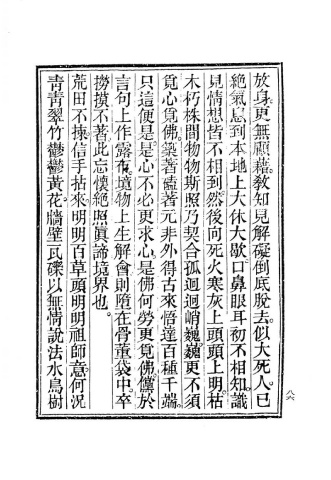 放身。更無顧藉。敎知見解礙倒底脫去。似大死人。已
絶氣息。到本地上大休大歇。口鼻眼耳初不相知。識
見情想皆不相到。然後向死火寒灰上頭頭上明。枯
木朽株間物物斯照。乃契合孤迥迥峭巍巍。更不須
覓心覓佛。築著磕著元非外得。古來悟達百種千端。
只這便是。是心不必更求心。是佛何勞更覓佛。儻於
言句上作露布。境物上生解會。則墮在骨董袋中。卒
撈摸不著。此忘懷絶照眞諦境界也。
荒田不揀。信手拈來。明明百草頭。明明祖師意。何況
靑靑翠竹鬱鬱黃花。牆壁瓦礫以無情說法。水鳥樹
八六